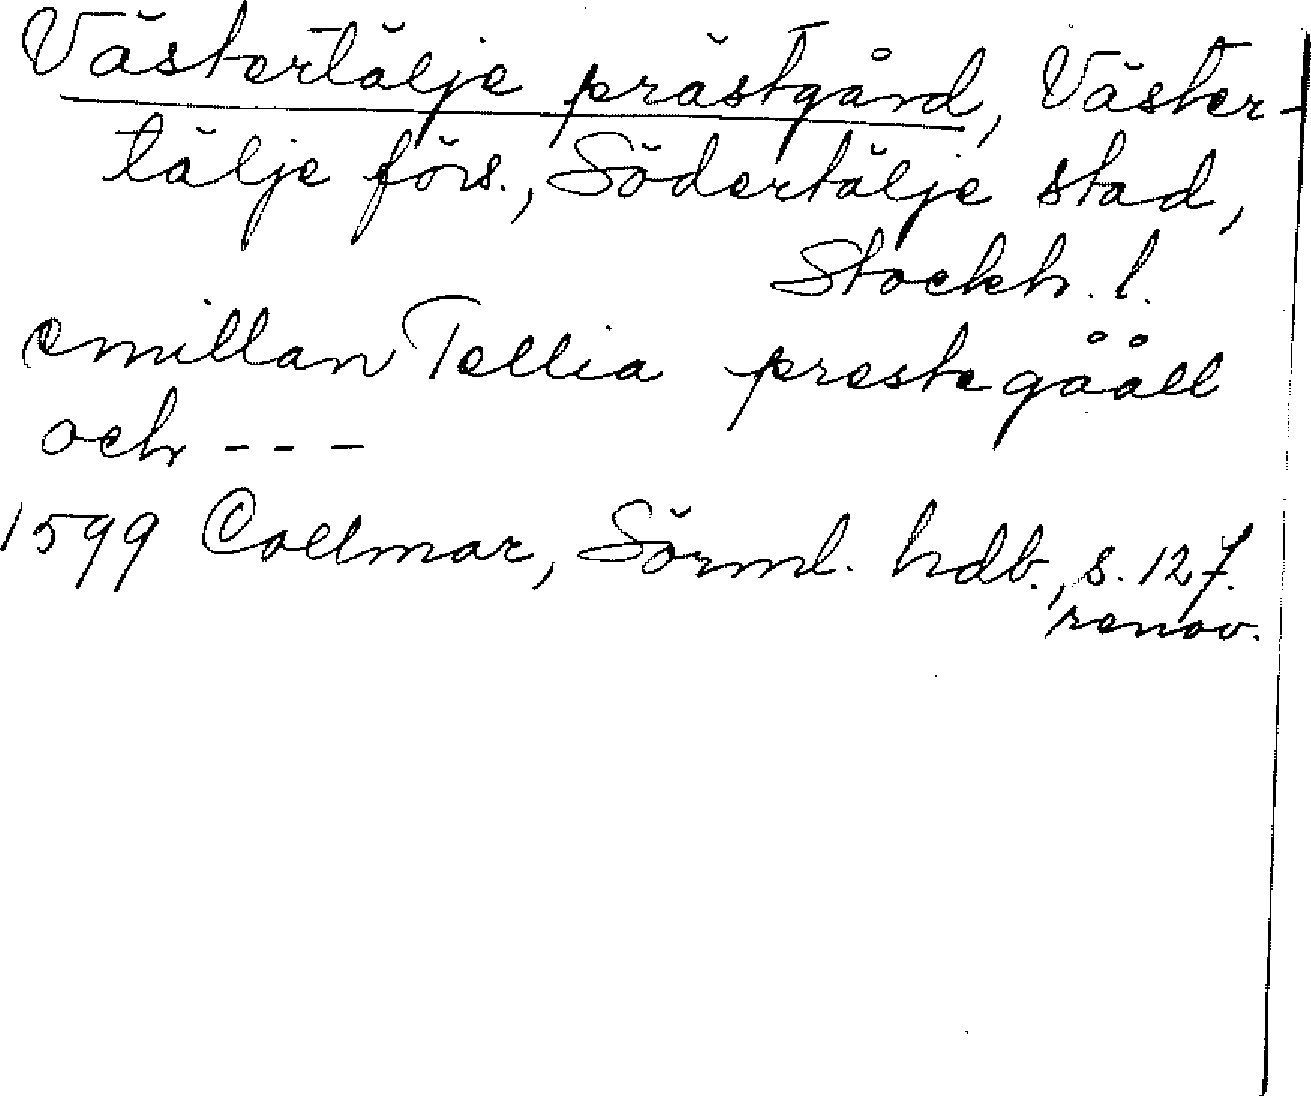 Västertälje prästgård, Väster-
tälje förs., Södertälje stad,
Stockh. l.
emillan Tellia prestegååll
och - - -
1599 Collmar, Sörml. hdb., s. 127.
renov.